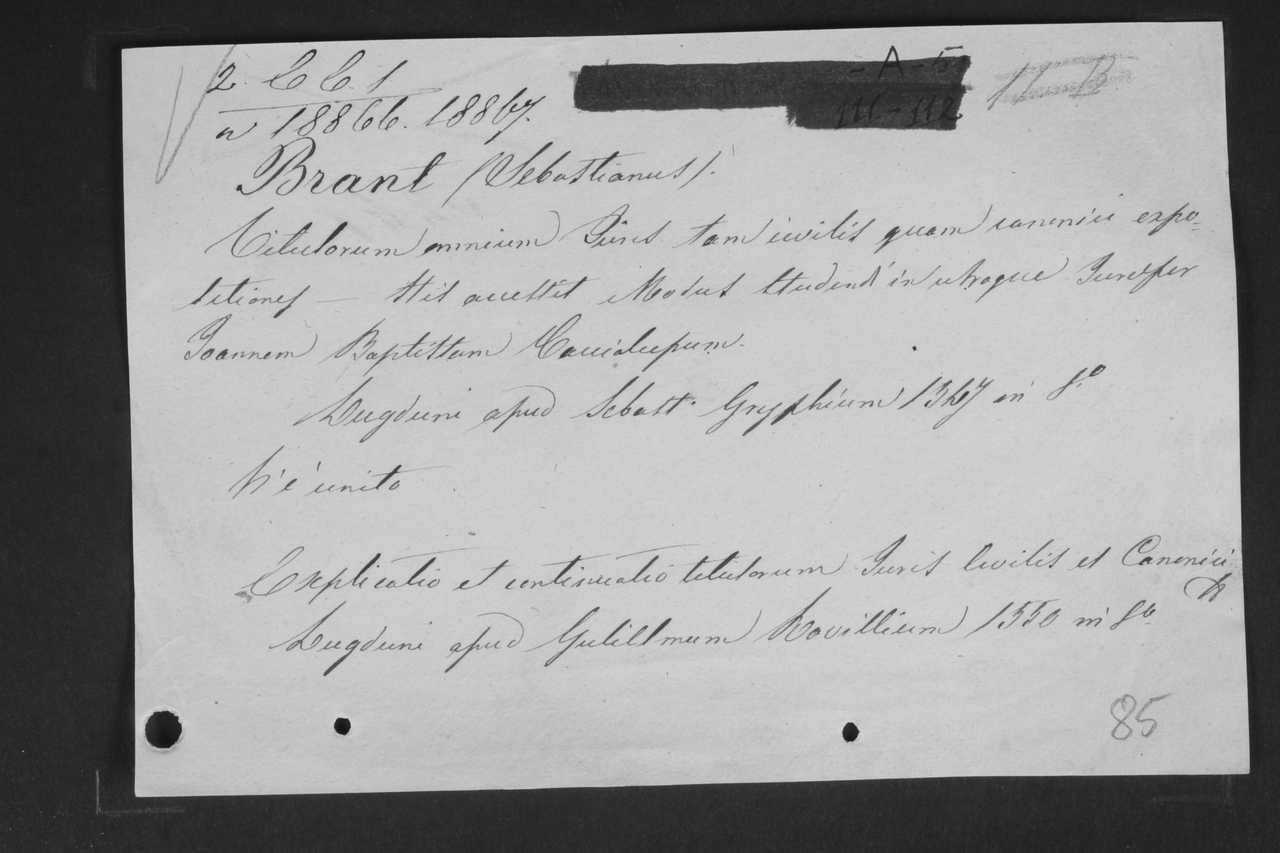 2. C C. 1
n 18866. 18867.
- A - 5
111 - 112
Brant (Sebastianus).
Titulorum omnium Juris tam civilis quam canonici expo-
sitiones — His accessit Modus studendi in utroque Jure per
Joannem Baptistam Caccialupum.
Lugduni apud Sebast. Gryphium 1547 in 8.º
V'è unito
Explicatio et continuatio titulorum Juris Civilis et Canonici
Lugduni apud Gulielmum Rovillium 1550 in 8º
85